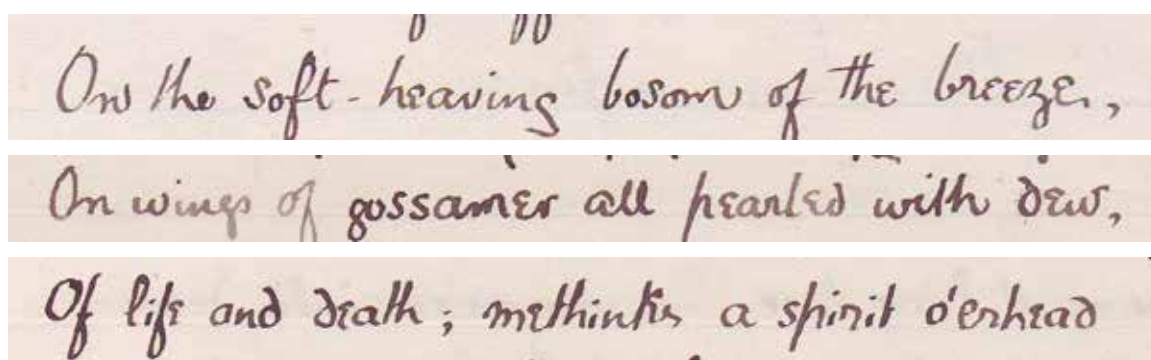 On the soft-heaving bosom of the breeze,
On wings of gossamer all pearled with dew,
Of life and death; methinks a spirit o'erhead